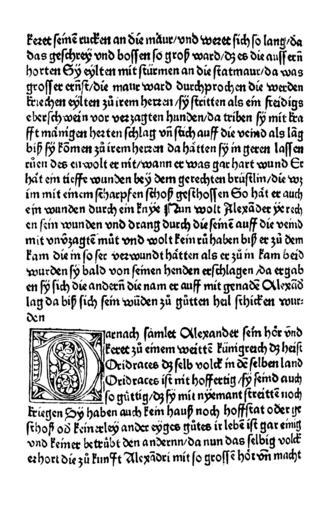 keret seinē rucken an die maur/und weret sich so lang/da
das geschrey und bossen so groß ward/dz es die aussern
horten Sy eylten mit stürmen an die statmaur/da was
grosser ernst/die maur ward durchprochen die werden
kriechen eylten zů irem herren/sy stritten als ein freidigs
eberschwein vor verzagten hunden/da triben sy mit kra
fft mänigen herten schlag vn̄ stich auff die veind als lāg
biß sy kōmen zů irem herren da hatten sy in geren lassen
růen des en wolt er nit/wann er was gar hart wund Er
hat ein tieffe wunden bey dem gerechten brüstlin/die wz
im mit einem scharpfen schoß geschossen So hat er auch
ein wunden durch ein knye Nun wolt Alexāder gerech
en sein wunden und drang durch die seinē auff die veind
mit unv̄zagtē můt und wolt kein rů haben biß er zů dem
kam die in so ser verwundt hätten als er zů in kam beid
wurden sy bald von seinen henden erschlagen/da ergab
en sy sich die andern̄ die nam er auff mit genadē Alexād
lag da biß sich sein wūden zů gůtten heil schicken wur-
den
Darnach samlet Alexander sein hör vn̄d
keret zů einem weittē künigreich dz heist
Oridraces dz selb volck in dē selben land
Oridraces ist nit hoffertig/sy seind auch
so gůttig/dz sy mit nyemant streitten noch
kriegen Sy haben auch kein hauß noch hoffstat oder ge
schoß od̄ keinerley ander eyges gůtes ir leben ist gar einig
und keiner betrübt den andernn/da nun das selbig volck
erhort die zů kunfft Alexādri mit so grossē hör vn̄ macht